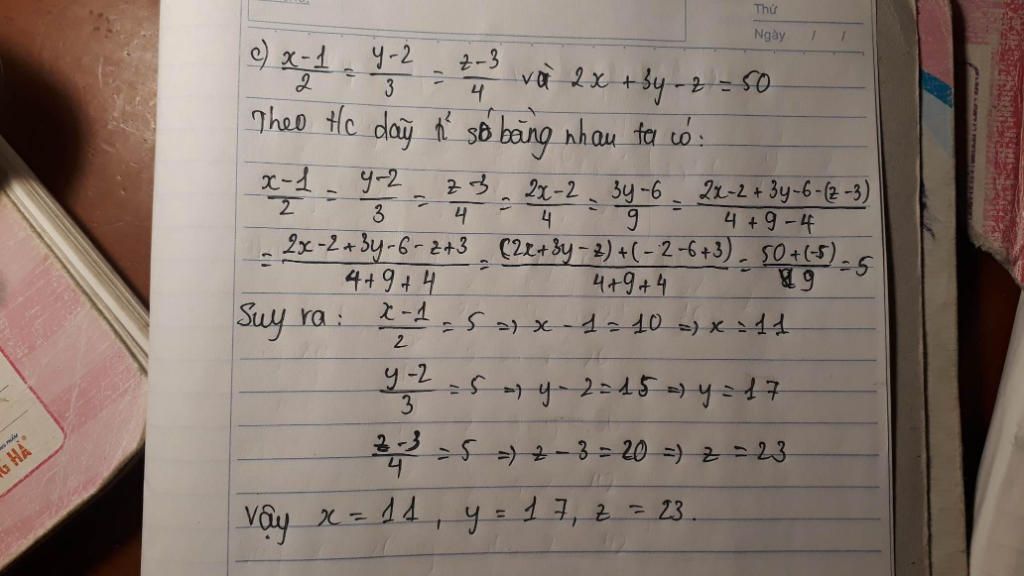 Thứ
Ngày / /
c) x-1/2 = y-2/3 = z-3/4 và 2x + 3y - z = 50
Theo t/c dãy tỉ số bằng nhau ta có:
x-1/2 = y-2/3 = z-3/4 = 2x-2/4 = 3y-6/9 = 2x-2+3y-6-(z-3)/4+9-4
= 2x-2+3y-6-z+3/4+9+4 = (2x+3y-z)+(-2-6+3)/4+9+4 = 50+(-5)/9 = 5
Suy ra: x-1/2 = 5 => x-1 = 10 => x = 11
y-2/3 = 5 => y-2 = 15 => y = 17
z-3/4 = 5 => z-3 = 20 => z = 23
Vậy x = 11, y = 17, z = 23.
NG HÀ